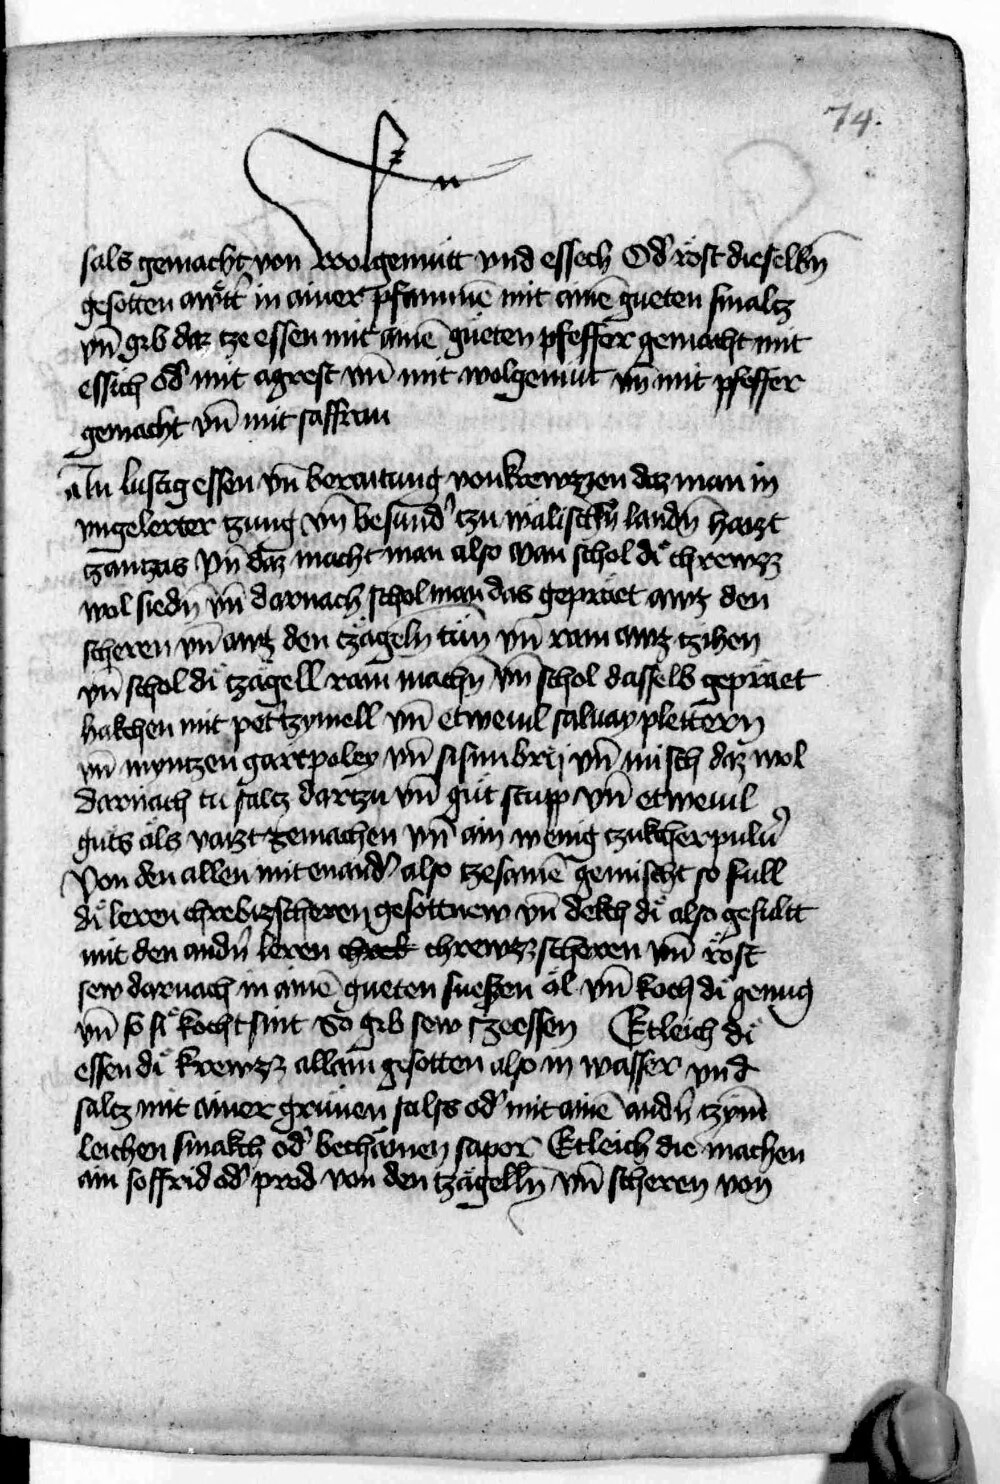 74.
sals gemacht von wolgemutt vnd essech Od' röst dieselbn̄
gesotten awtt' in ainer pfannnē mit ainē gueten smaltz
vn̄ gib daz tze essen mit ainē güeten pfeffer gemacht mit
essich od' mit agrest vn̄ mit wolgemut vn̄ mit pfeffer
gemacht vn̄ mit saffran
Ain lustig essen vn̄ beraitung von krewtzen daz man in
vngelerter tzung vn̄ besund' tzu wälischn̄ landn̄ haizt
gantzas vn̄ daz macht man also Man schol di chrewtz
wol siedn̄ vn̄ darnach schol man das gepräet awz den
scheren vn̄ awz den tzägeln tün vn̄ rain awz tzihen
vn̄ schol di tzägell rain machn̄ vn̄ schol dasselb gepräet
hakchen mit pet'tzymell vn̄ etweuil saluay plettern
vn̄ myntzen gartpoley vn̄ sisimbrij vn̄ misch daz wol
darnach tu saltz dartzu vn̄ güt stupp vn̄ etweuil
guts äls vaizt gemachen vn̄ ain wenig tzukcherpulu'
Von den allen mitenand' also tzesamē gemischt so full
di leren chrebizscheren gesottnew vn̄ dekch di also gefultt
mit den andn̄ leren chrewtzscheren vn̄ röst
sew darnach in ainē gueten suessen äl vn̄ koch di genug
vn̄ so si kocht sint So gib sew tzeessen Etleich di
essen di krewtz allain gesotten also in wasser vnd
saltz mit ainer grünen sals od' mit ainē andn̄ tzym̄
leichen smakch od' bechämen sapor Etleich die machen
ain soffrid od' prod von den tzägelln̄ vn̄ scheren von